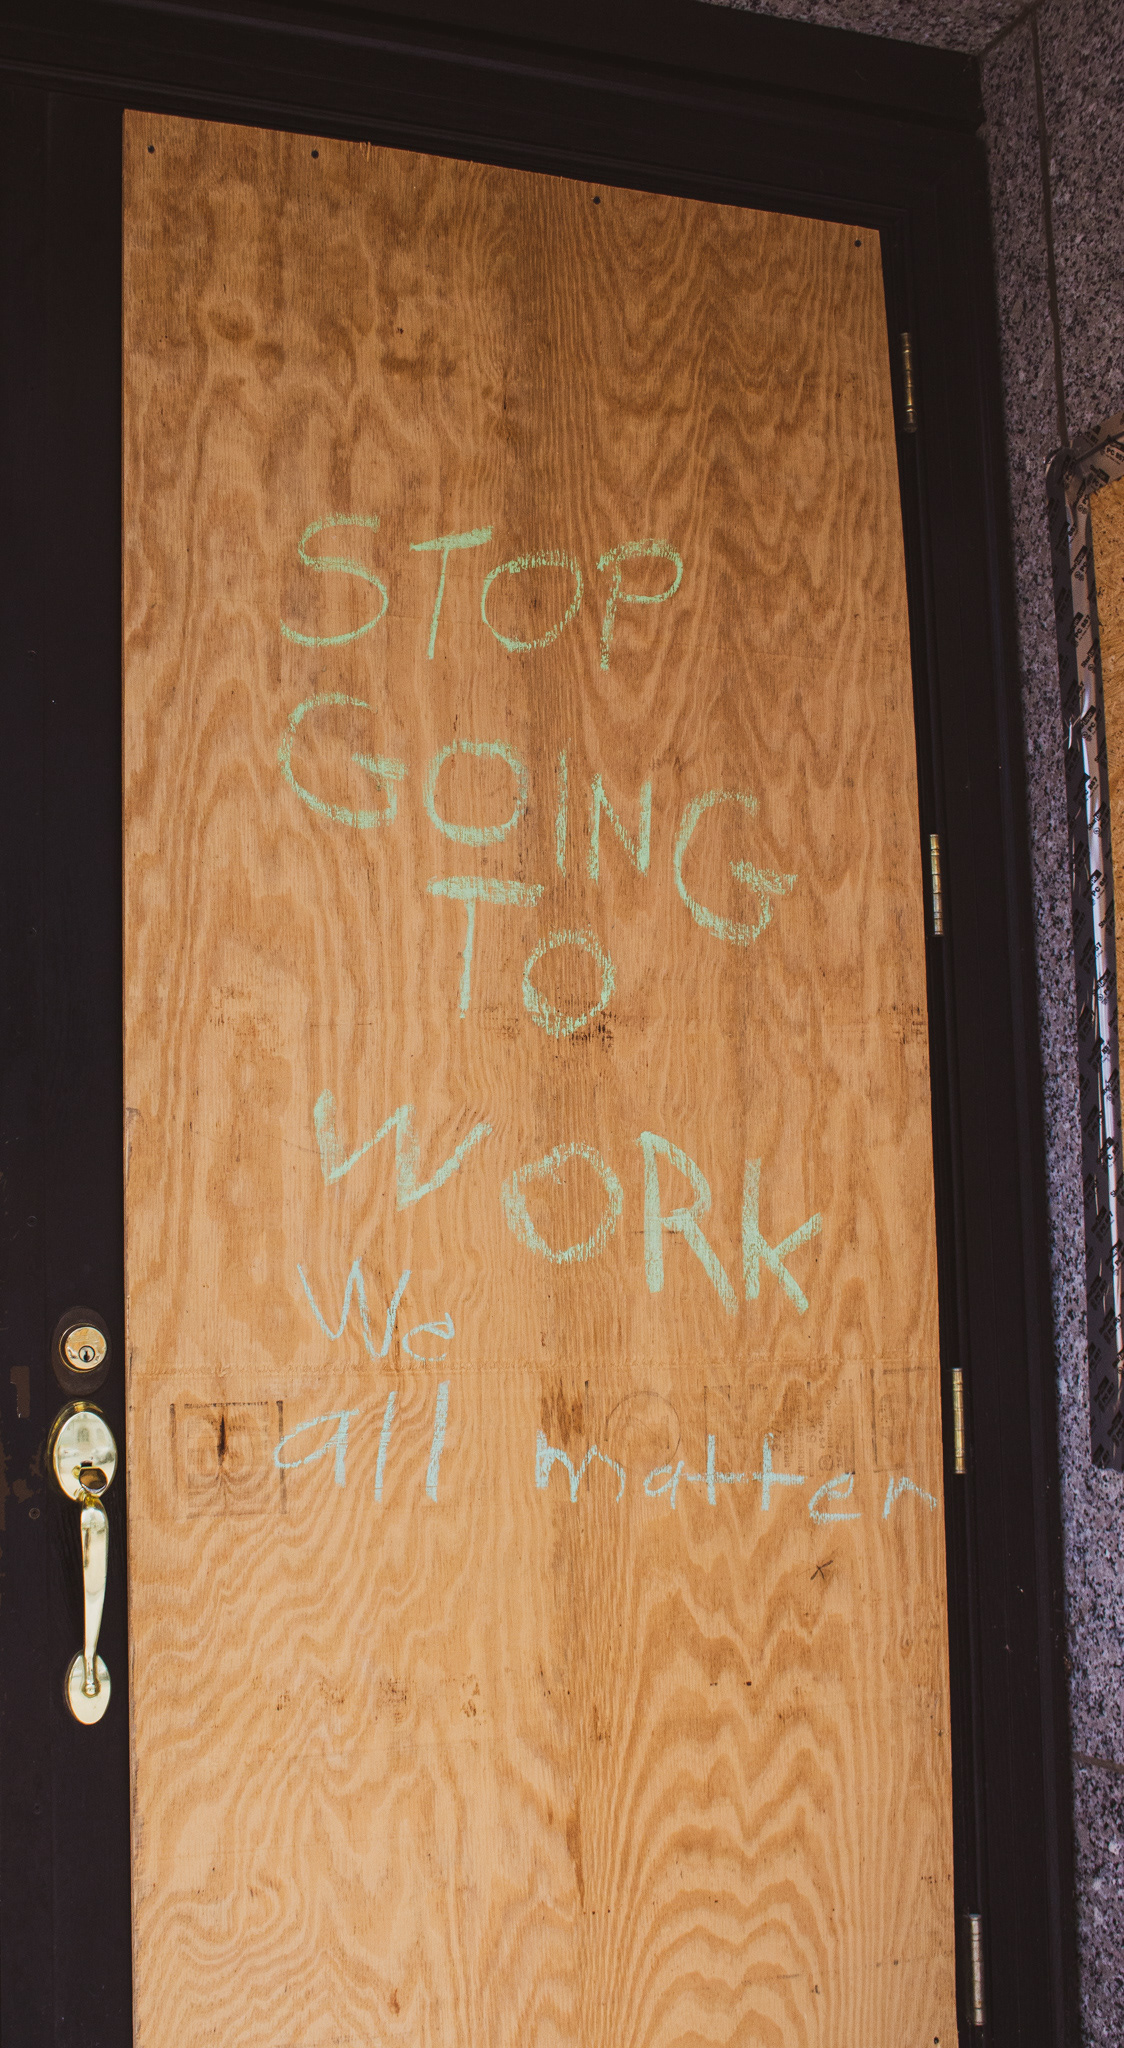 STOP
GOING
TO
WORK
We
all matter